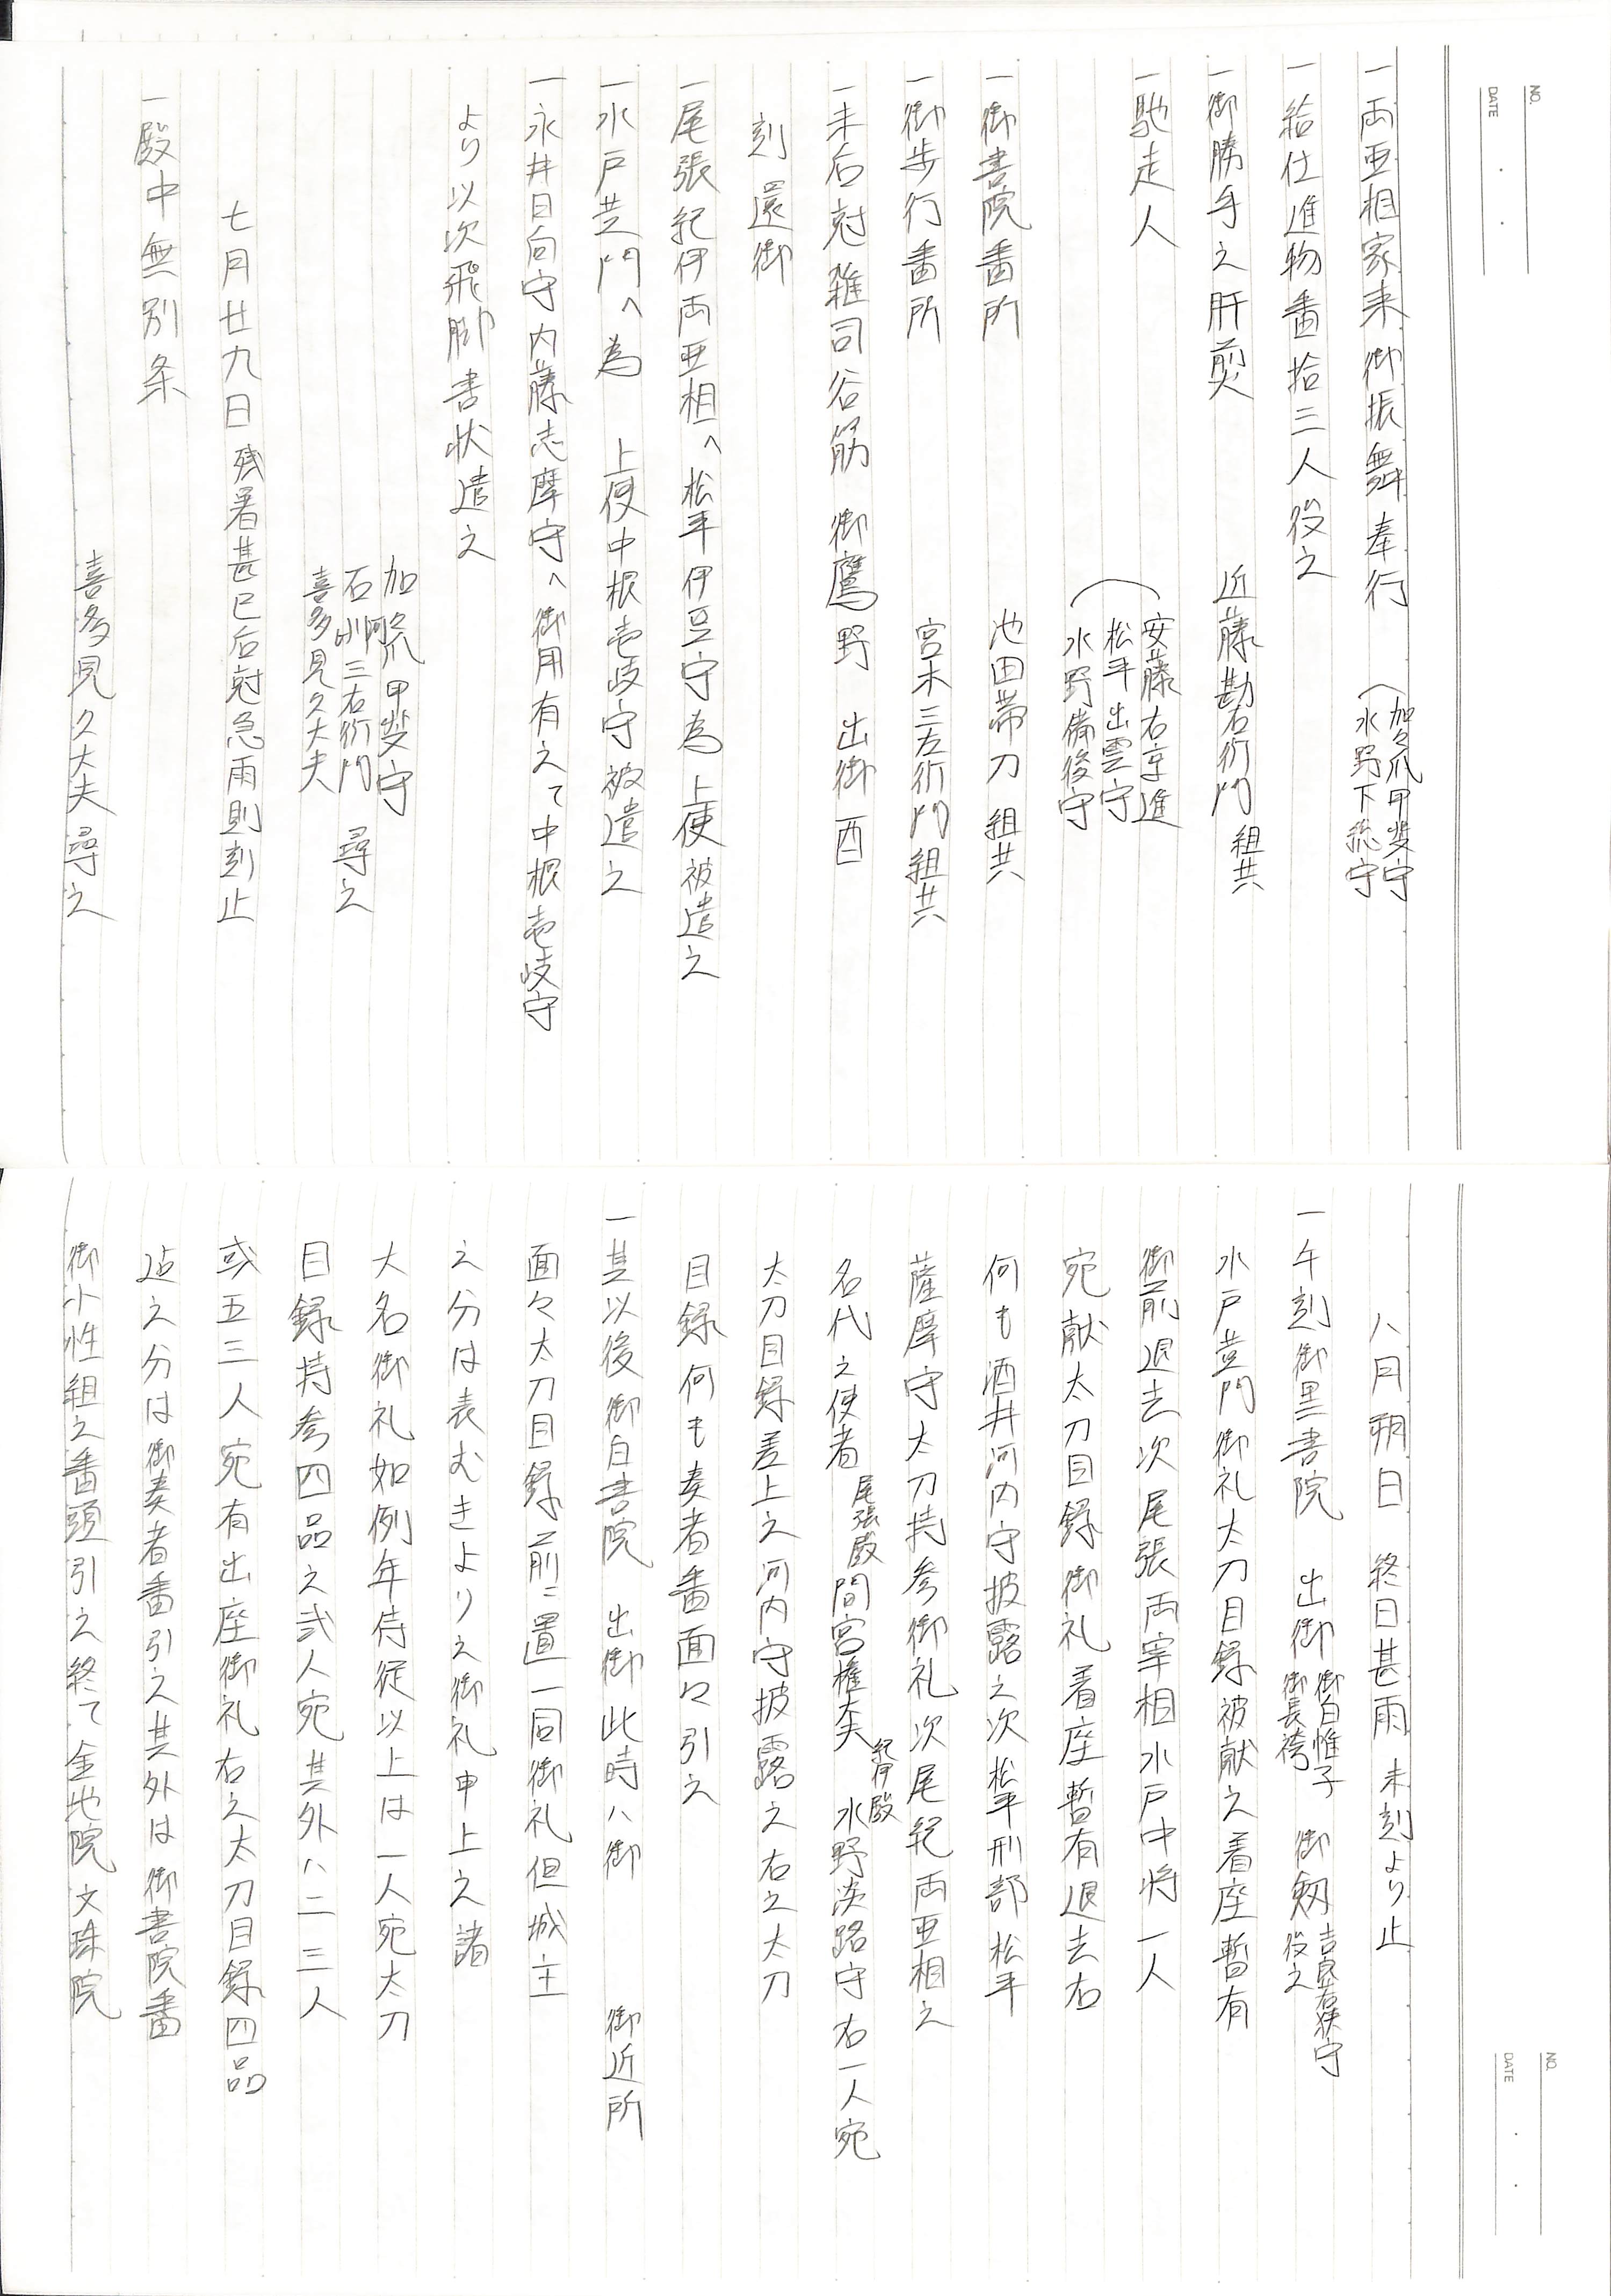 NO.
DATE
一両亜相家来御振舞奉行 加々爪甲斐守
水野下総守
一給仕進物番拾三人役之
一御勝手之肝煎 近藤勘右衛門 組共
一馳走人 安藤右京進
松平出雲守
水野備後守
一御書院番所 池田帯刀 組共
一御歩行番所 宮木三左衛門 組共
一未后尅雑司谷筋 御鷹野 出御 酉
刻 還御
一尾張紀伊両亜相へ松平伊豆守為 上使被遣之
一水戸黄門へ為 上使中根壱岐守被遣之
一永井日向守内藤志摩守へ御用有之て中根壱岐守
より以次飛脚書状遣之
加々爪甲斐守
石川三右衛門 尋之
喜多見久大夫
七月廿九日 残暑甚巳后尅急雨則刻止
一殿中無別条
喜多見久大夫尋之
NO.
DATE
八月朔日 終日甚雨 未刻より止
一午刻御黒書院 出御 御白帷子
御長袴 御剱 吉良若狭守
役之
水戸黄門御礼太刀目録被献之着座暫有
御前退去次尾張両宰相水戸中将一人
宛献太刀目録御礼着座暫有退去右
何も酒井河内守披露之次松平刑部松平
薩摩守太刀持参御礼次尾紀両亜相之
名代之使者 尾張殿 間宮権大夫 紀伊殿 水野淡路守右一人宛
太刀目録差上之河内守披露之右之太刀
目録何も奏者番面々引之
一其以後御白書院 出御此時ハ御 御近所
面々太刀目録前ニ置一同御礼但城主
之分は表むきより之御礼申上之諸
大名御礼如例年侍従以上は一人宛太刀
目録持参四品之弐人宛其外ハ二三人
或五三人宛有出座御礼右之太刀目録四品
迄之分は御奏者番引之其外は御書院番
御小性組之番頭引之終て金地院文殊院